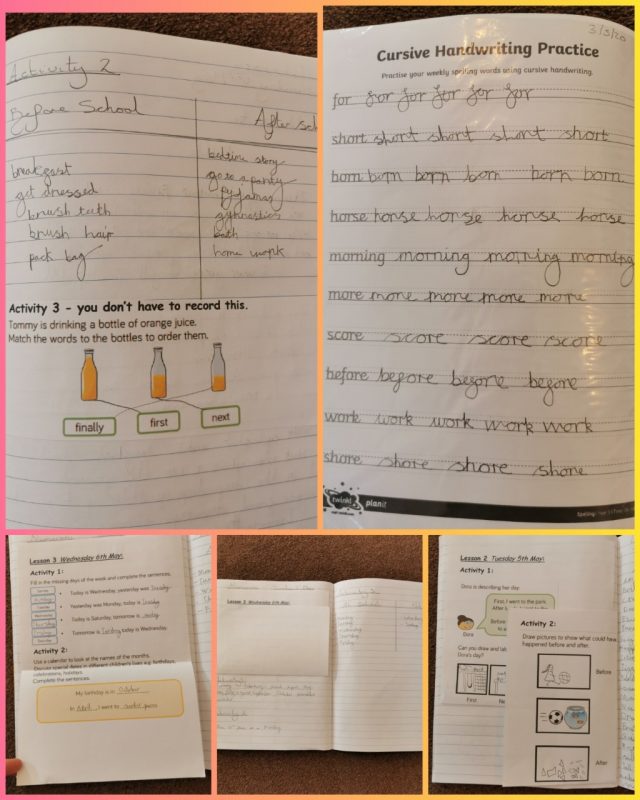 Activity 2
Before School
After sch
breakfast
get dressed
brush teeth
brush hair
pack bag
bedtime story
pyjamas
gymnastics
bath
home work
Activity 3 - you don't have to record this.
Tommy is drinking a bottle of orange juice.
Match the words to the bottles to order them.
finally
first
next
3/3/20
Cursive Handwriting Practice
Practise your weekly spelling words using cursive handwriting.
for for for for for for
short short short short short
born born born born born born
horse horse horse horse horse
morning morning morning morning
more more more more more
score score score score
before before before before
work work work work work
shore shore shore shore
twinkl
planit
Lesson 3 Wednesday 6th May:
Activity 1:
Fill in the missing days of the week and complete the sentences.
Today is Wednesday, yesterday was Tuesday
Yesterday was Monday, today is Tuesday
Today is Saturday, tomorrow is Sunday
Tomorrow is Tuesday, today is Wednesday.
Activity 2:
Use a calendar to look at the names of the months.
Discuss special dates in different children's lives e.g. birthdays,
celebrations, holidays.
Complete the sentences.
My birthday is in October
In April I went to
Lesson 3 Wednesday 6th May:
Lesson 2 Tuesday 5th May:
Activity 1:
Dora is describing her day.
First, I went to the park.
Before
Dora
Can you draw and lab
Dora's day?
First
Activity 2:
Draw pictures to show what could have
happened before and after.
Before
After